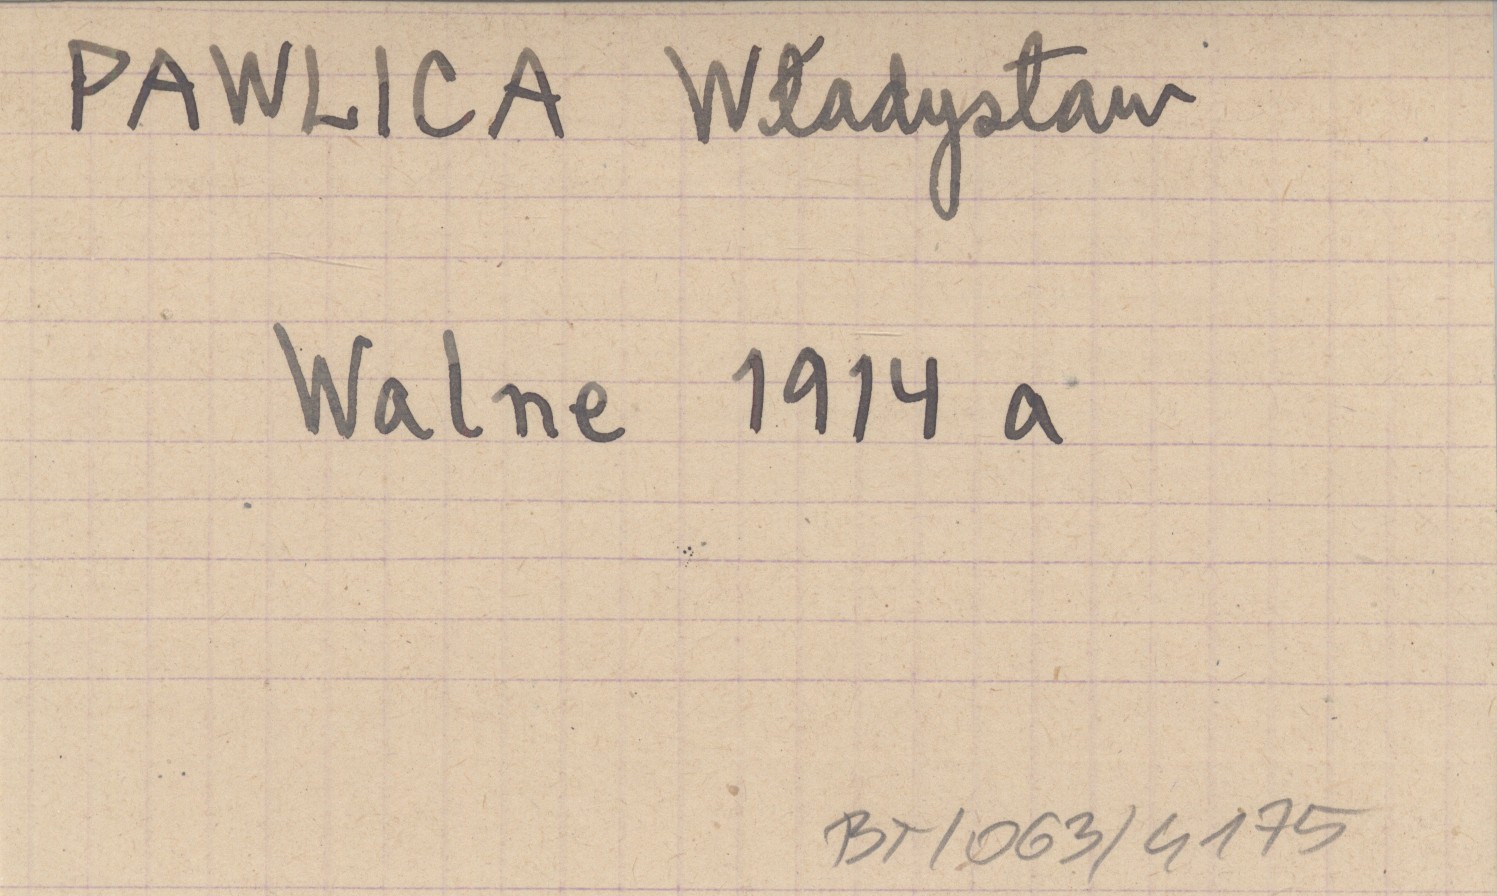 PAWLICA Władysław
Walne 1914 a
BT/063/4175